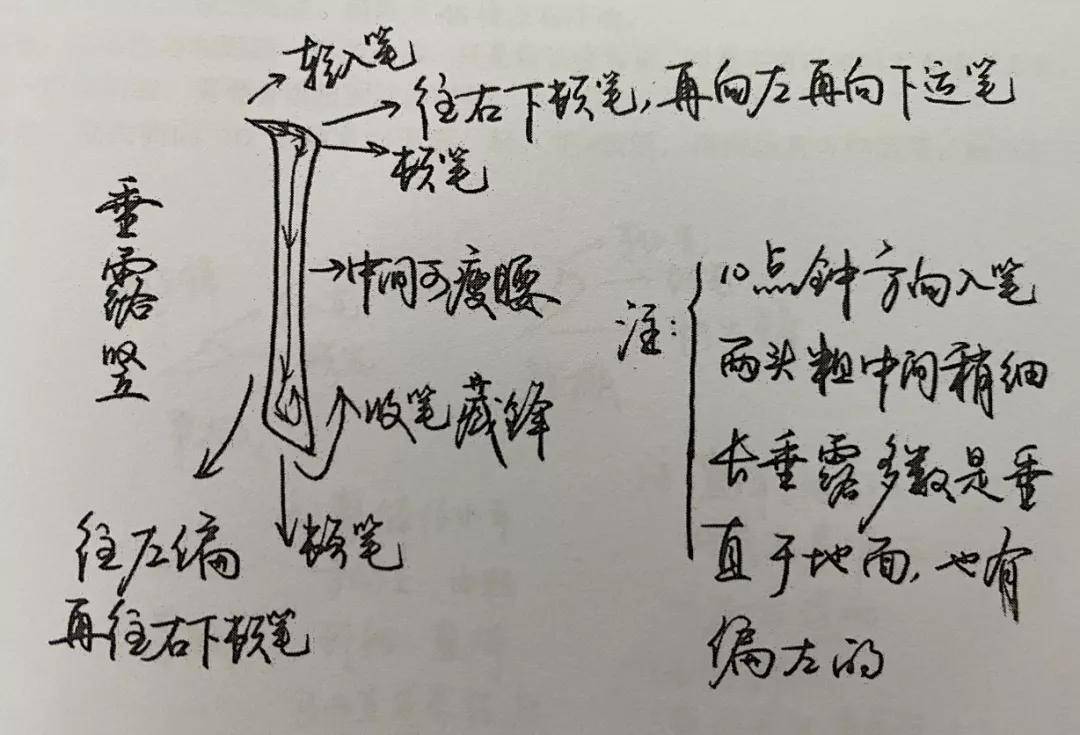 轻入笔
往右下顿笔，再向左再向下运笔
顿笔
垂露竖
中间可瘦腰
收笔藏锋
往左偏
再往右下顿笔
顿笔
注：
10点钟方向入笔
两头粗中间稍细
长垂露多数是垂
直于地面，也有
偏左的